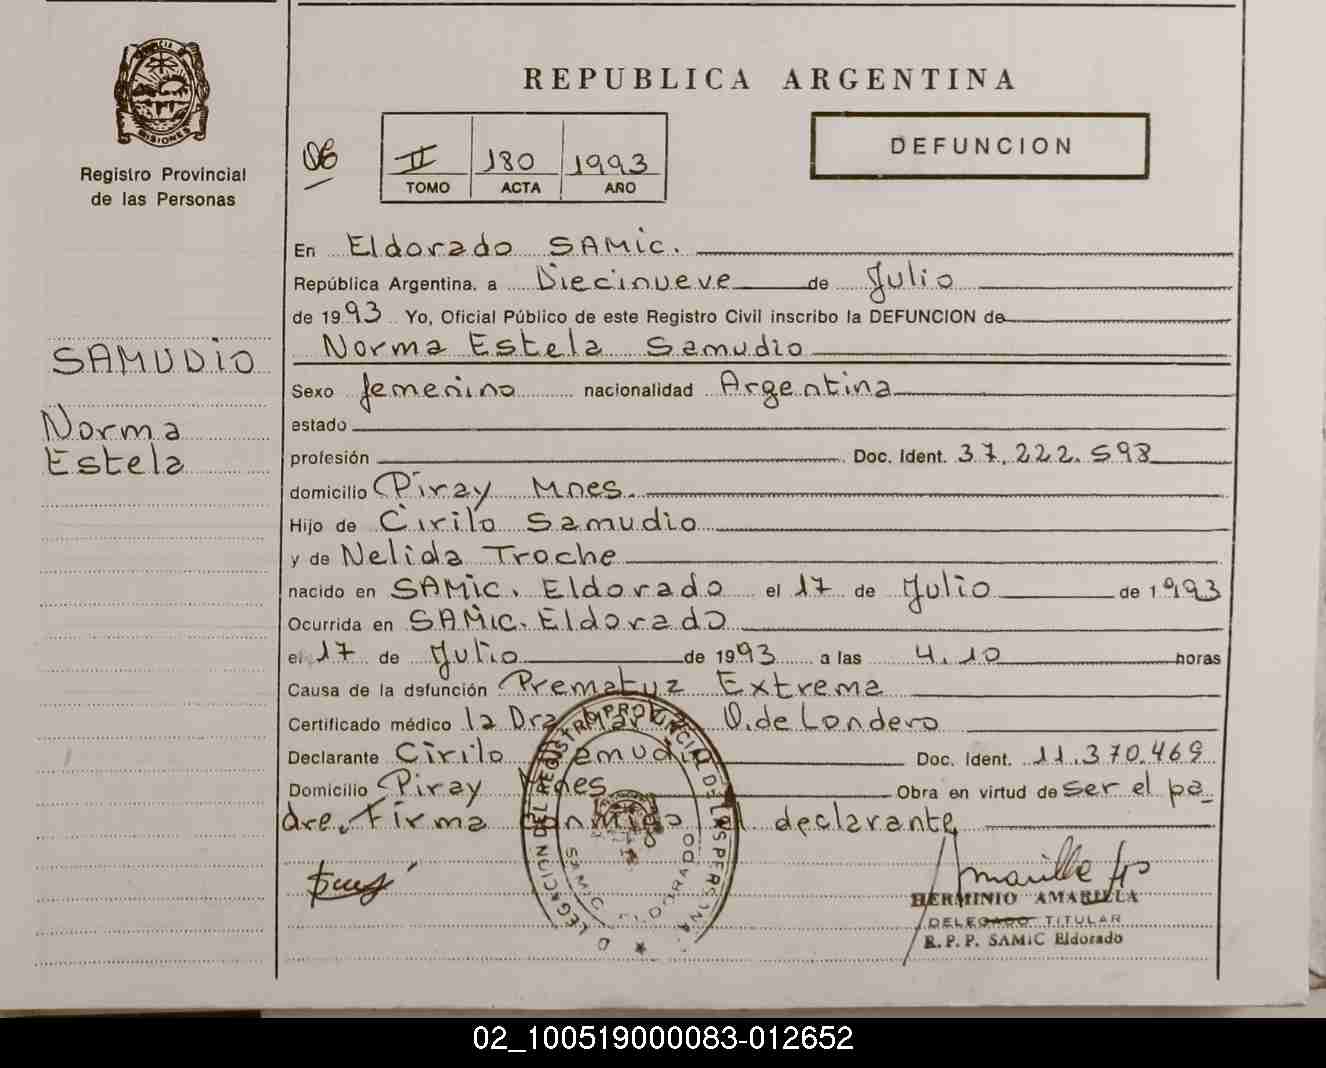 MISIONES
Registro Provincial
de las Personas
REPUBLICA ARGENTINA
DEFUNCION
06
II 180 1993
TOMO ACTA AÑO
En Eldorado SAMic.
República Argentina, a Diecinueve de Julio
de 1993 Yo, Oficial Público de este Registro Civil inscribo la DEFUNCION de
SAMUDIO
Norma
Estela
Norma Estela Samudio
Sexo femenino nacionalidad Argentina
estado
profesión Doc. Ident. 37.222.598
domicilio Piray Mnes.
Hijo de Cirilo Samudio
y de Nelida Troche
nacido en SAMic. Eldorado el 17 de Julio de 1993
Ocurrida en SAMic. Eldorado
el 17 de Julio de 1993 a las 4.10 horas
Causa de la defunción Prematuz Extrema
Certificado médico la Dra O. de Londero
Declarante Cirilo Samudio Doc. Ident. 11.370.469
Domicilio Piray Mnes Obra en virtud de ser el pa_
dre. Firma conmigo el declarante
DELEGACION DEL REGISTRO PROVINCIAL DE LAS PERSONAS
SAMIC ELDORADO
HERMINIO AMARILLA
DELEGADO TITULAR
R.P.P. SAMiC Eldorado
02_100519000083-012652